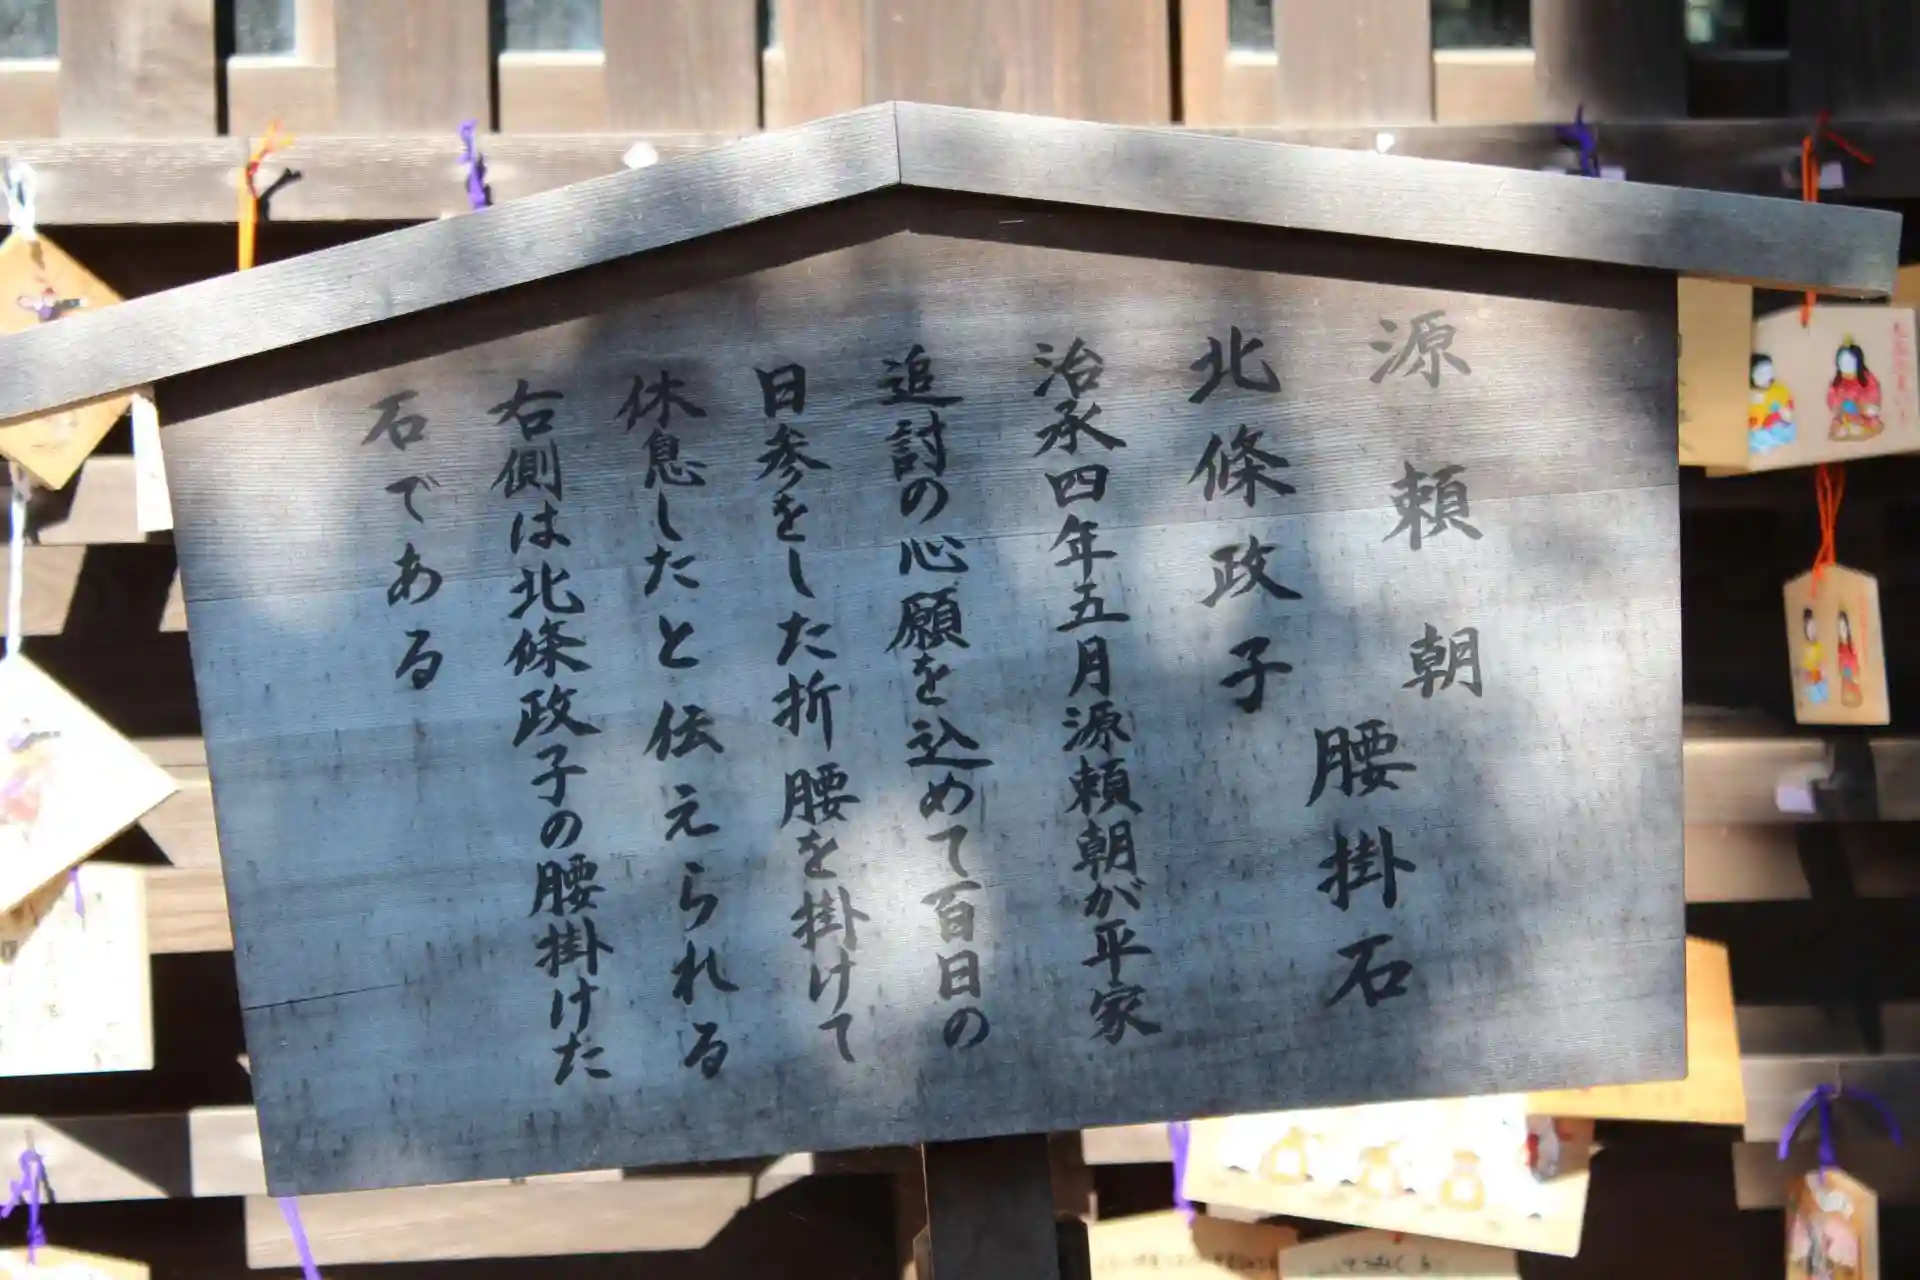 源頼朝
北條政子
腰掛石
治承四年五月源頼朝が平家
追討の心願を込めて百日の
日参をした折腰を掛けて
休息したと伝えられる
右側は北條政子の腰掛けた
石である